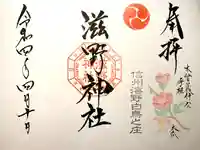 奉拝
信州滋野白鳥之庄
滋野神社
令和四年四月十日